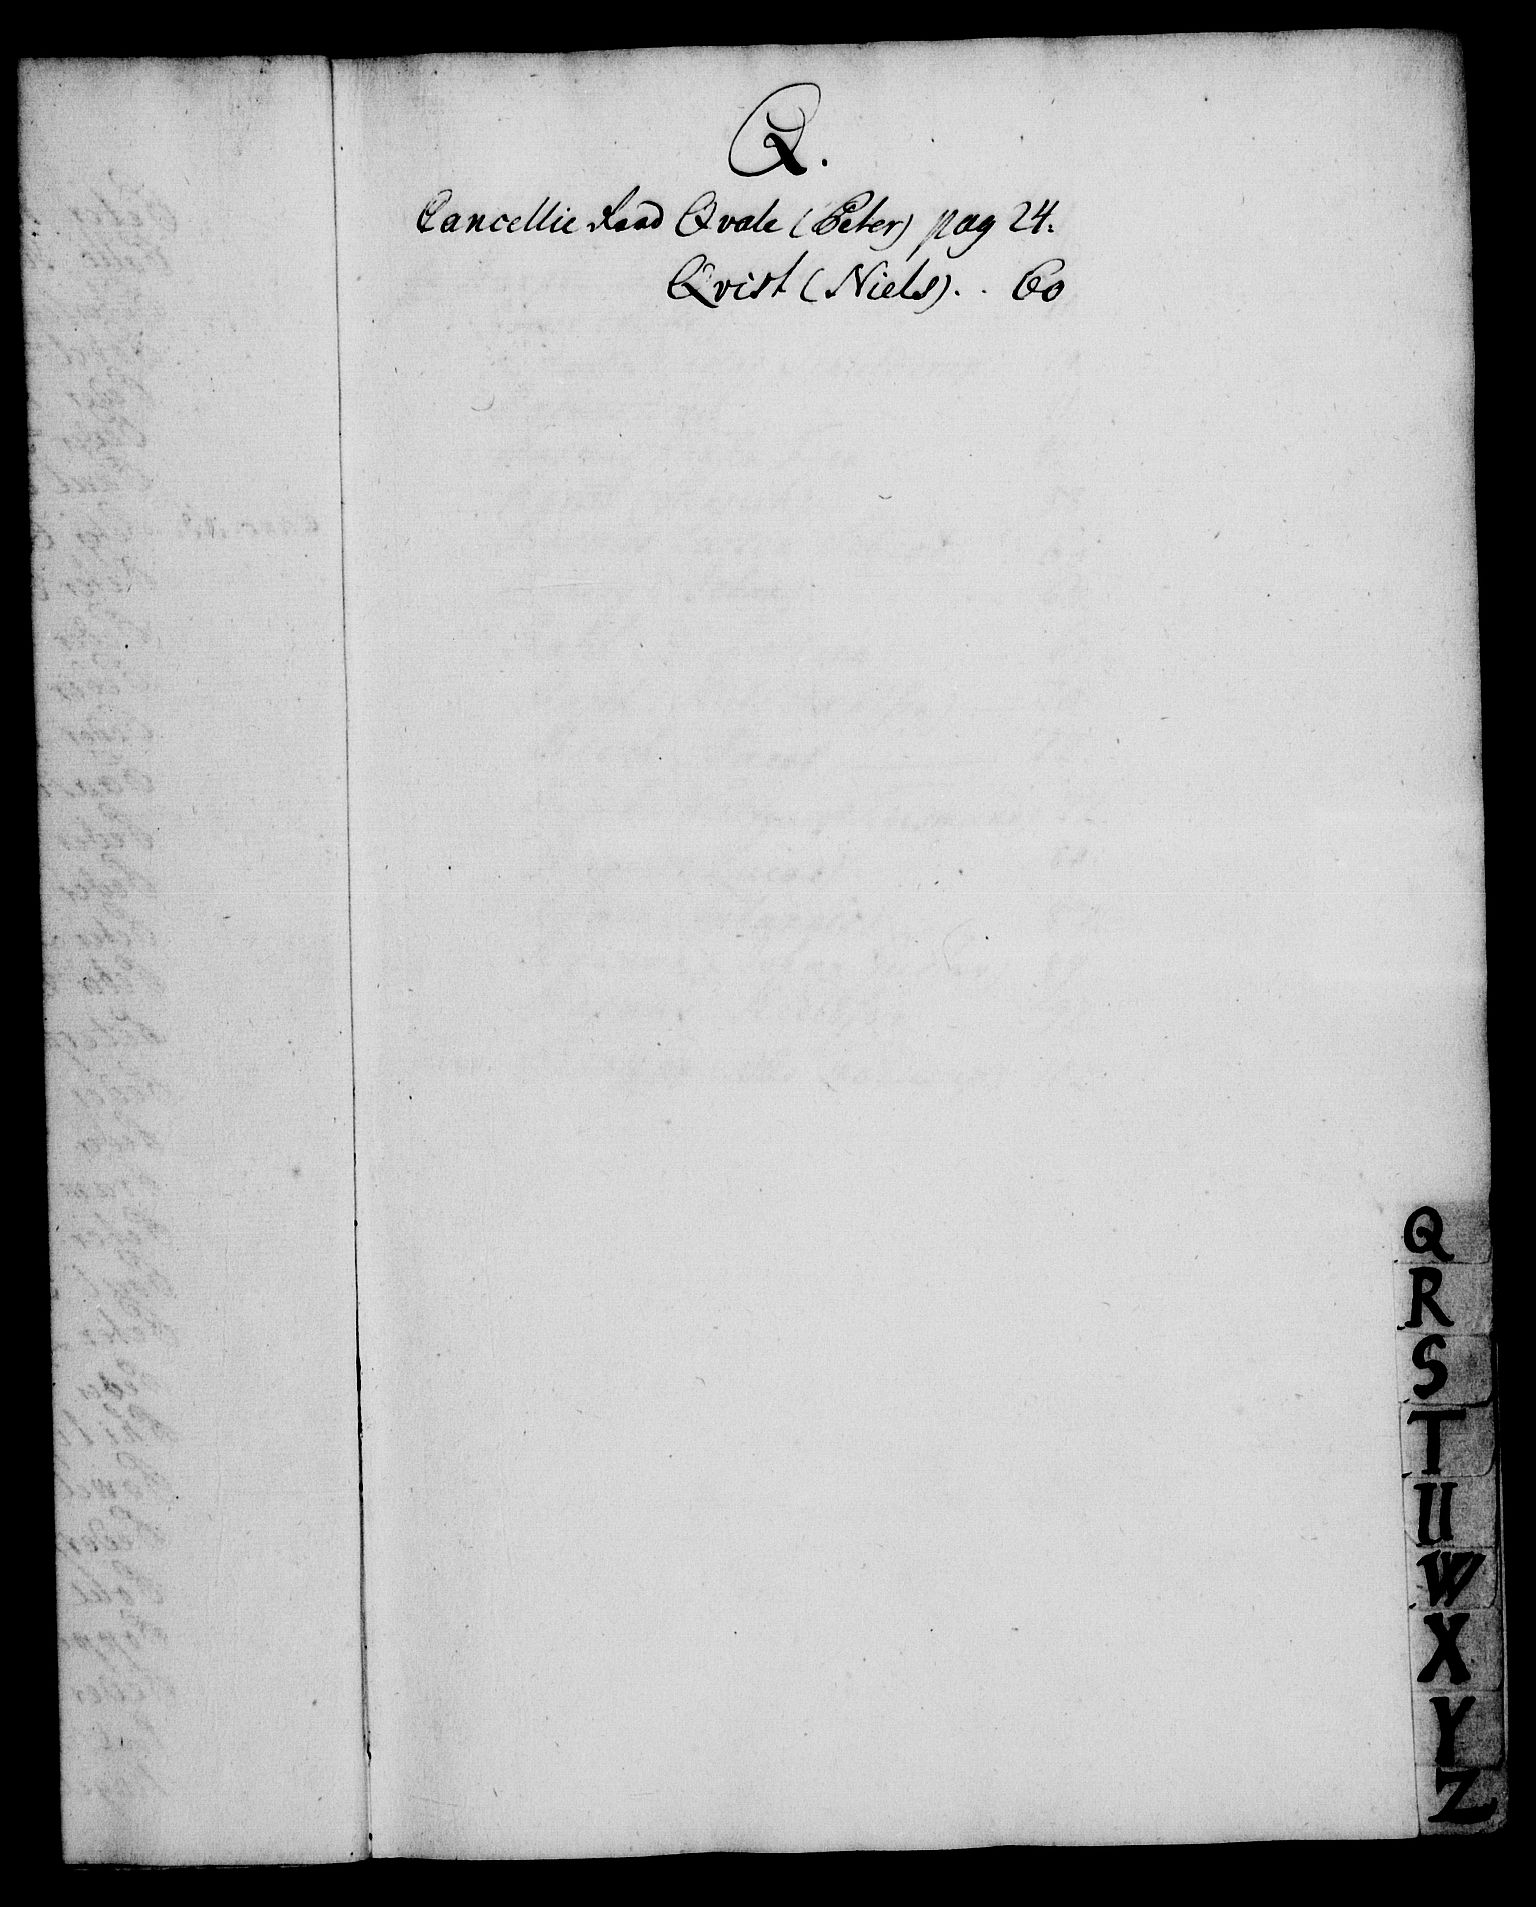 Q.
Cancellie Raad Qvale (Peter) pag 24.
Qvist (Niels). . 60
Q
R
S
T
U
W
X
Y
Z